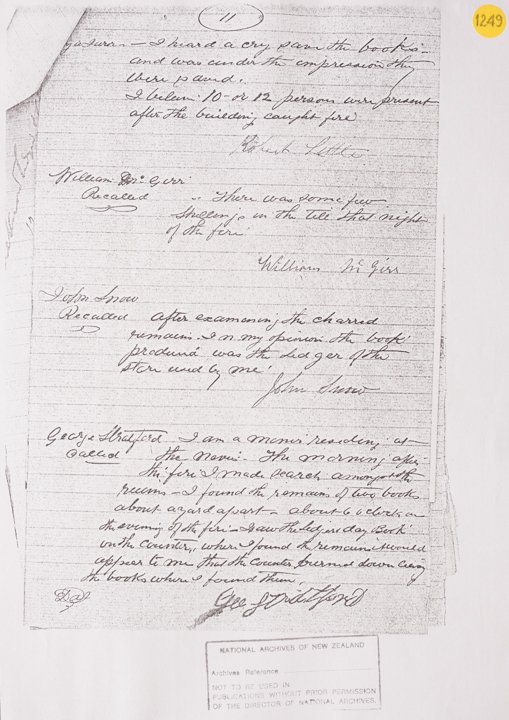 11
1249
I heard a cry save the books
and was under the impression they
were saved.
I believe 10 or 12 persons were present
after the building caught fire
Robert
William McGirr
Recalled - There was some few
shillings in the till that night
of the fire
William McGirr
John Snow
Recalled After examining the charred
remains. In my opinion the book
produced was the ledger of the
store used by me.
John Snow
George Stratford I am a miner residing at
called the Nevis. The morning after
the fire I made search amongst the
ruins - I found the remains of two books
about a yard apart - about 6 o'clock on
the evening of the fire - I saw the Ledger & day Book
on the counter, where I found the remains it would
appear to me that the counter burned down
the books where I found them.
Geo Stratford
NATIONAL ARCHIVES OF NEW ZEALAND
Archives Reference
NOT TO BE USED IN
PUBLICATIONS WITHOUT PRIOR PERMISSION
OF THE DIRECTOR OF NATIONAL ARCHIVES.